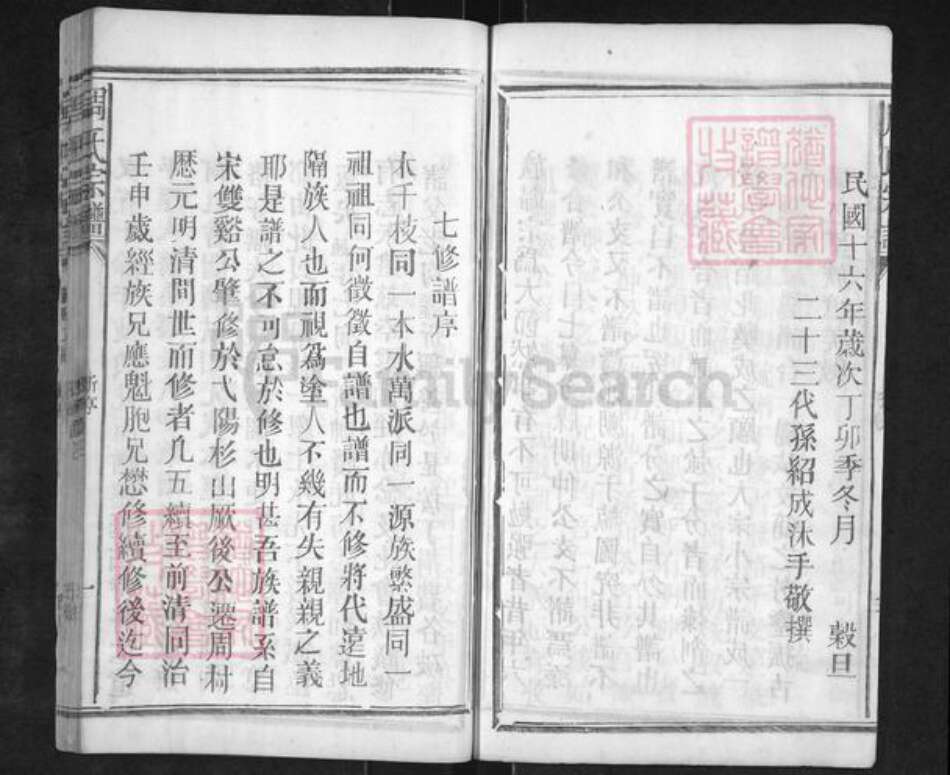 民國十六年歲次丁卯季冬月　穀旦
二十三代孫紹成沐手敬撰
猶他家譜學會收藏
七修譜序
木千枝同一本水萬派同一源族繁盛同一
祖祖同何徵徵自譜也譜而不修將代遠地
隔族人也而視爲塗人不幾有失親親之義
耶是譜之不可怠於修也明甚吾族譜系自
宋雙谿公肇修於弋陽杉山厥後公遷周村
歷元明清間世而修者凡五續至前清同治
壬申歲經族兄應魁胞兄懋修續修後迄今
周氏宗譜
新序
一
FamilySearch